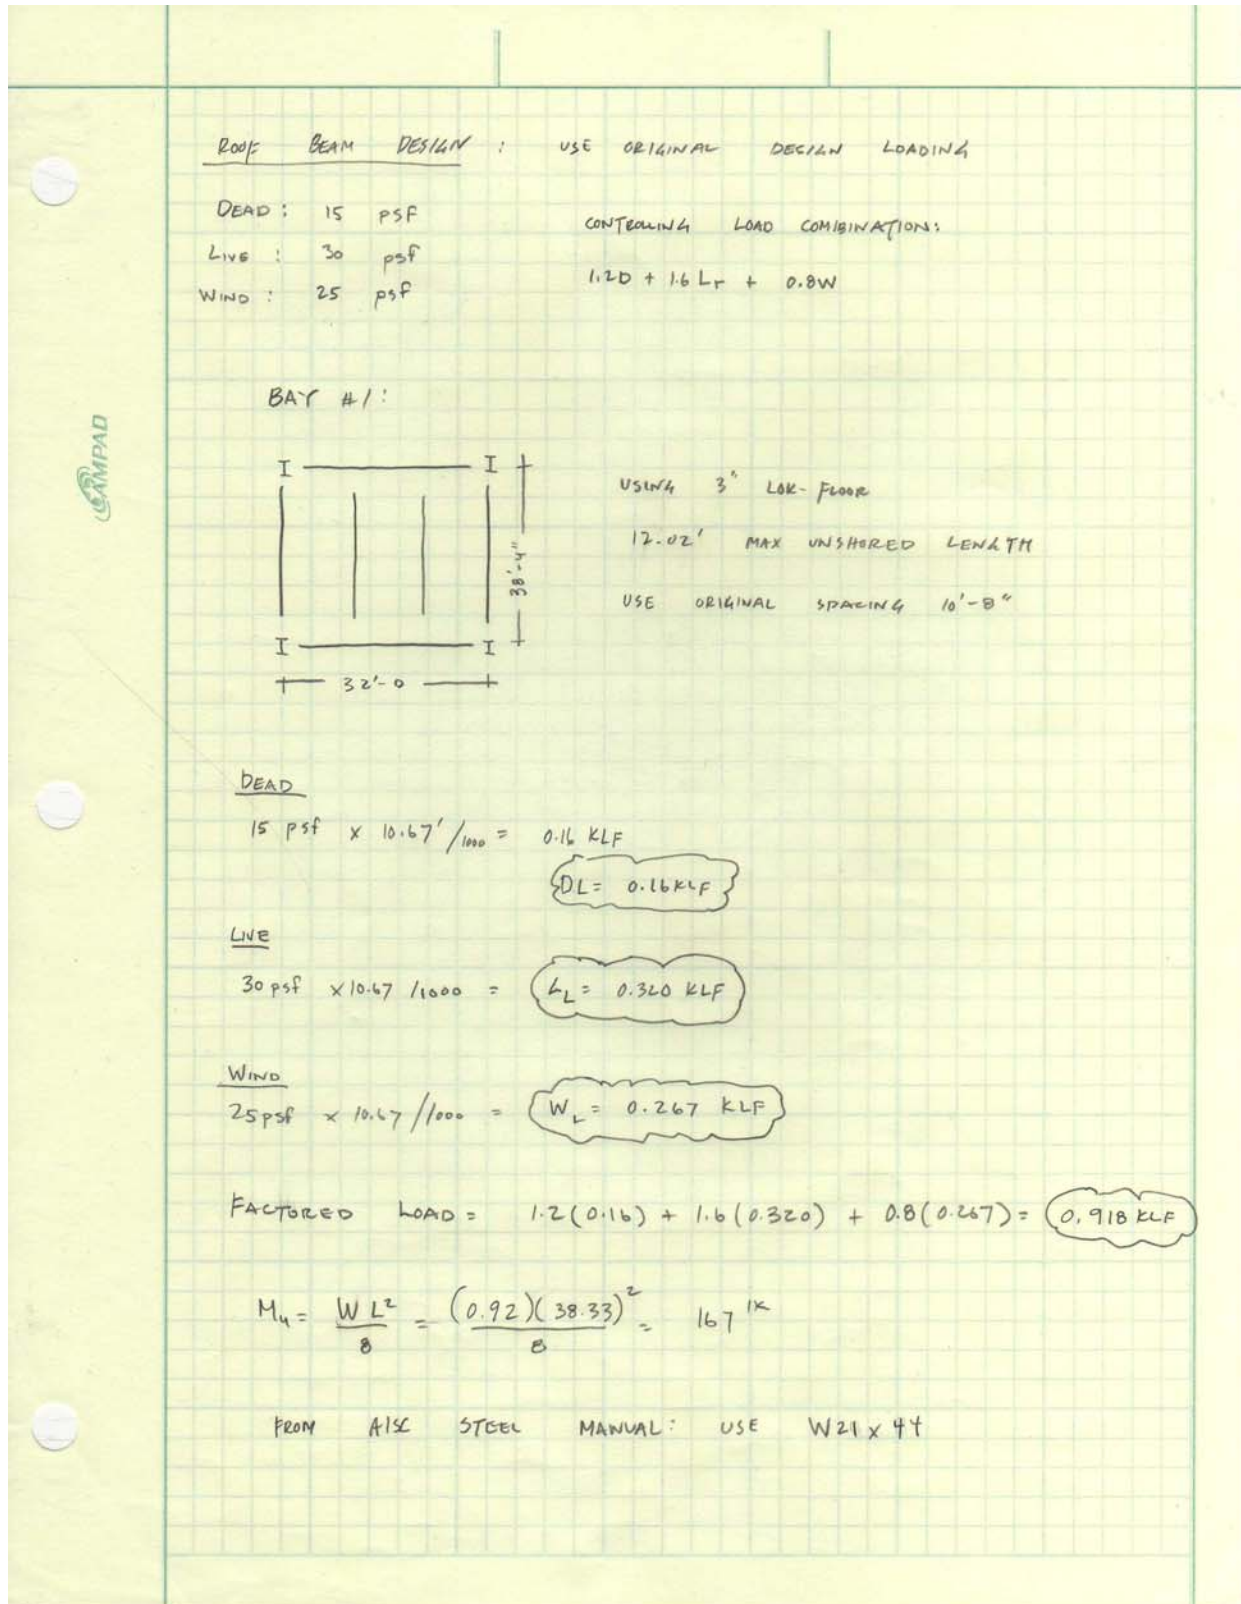 ROOF BEAM DESIGN : USE ORIGINAL DESIGN LOADING
DEAD : 15 PSF
LIVE : 30 psf
WIND : 25 psf
CONTROLLING LOAD COMBINATION:
1.2D + 1.6 Lr + 0.8W
BAY #1:
CAMPAD
I I
38'-4"
I I
32'-0
USING 3" LOK-FLOOR
12.02' MAX UNSHORED LENGTH
USE ORIGINAL SPACING 10'-8"
DEAD
15 psf x 10.67' /1000 = 0.16 KLF
DL = 0.16 KLF
LIVE
30 psf x 10.67 /1000 = LL = 0.320 KLF
WIND
25 psf x 10.67 /1000 = WL = 0.267 KLF
FACTORED LOAD = 1.2(0.16) + 1.6(0.320) + 0.8(0.267) = 0.918 KLF
Mu = WL²/8 = (0.92)(38.33)²/8 = 167 'K
FROM AISC STEEL MANUAL: USE W21 x 44